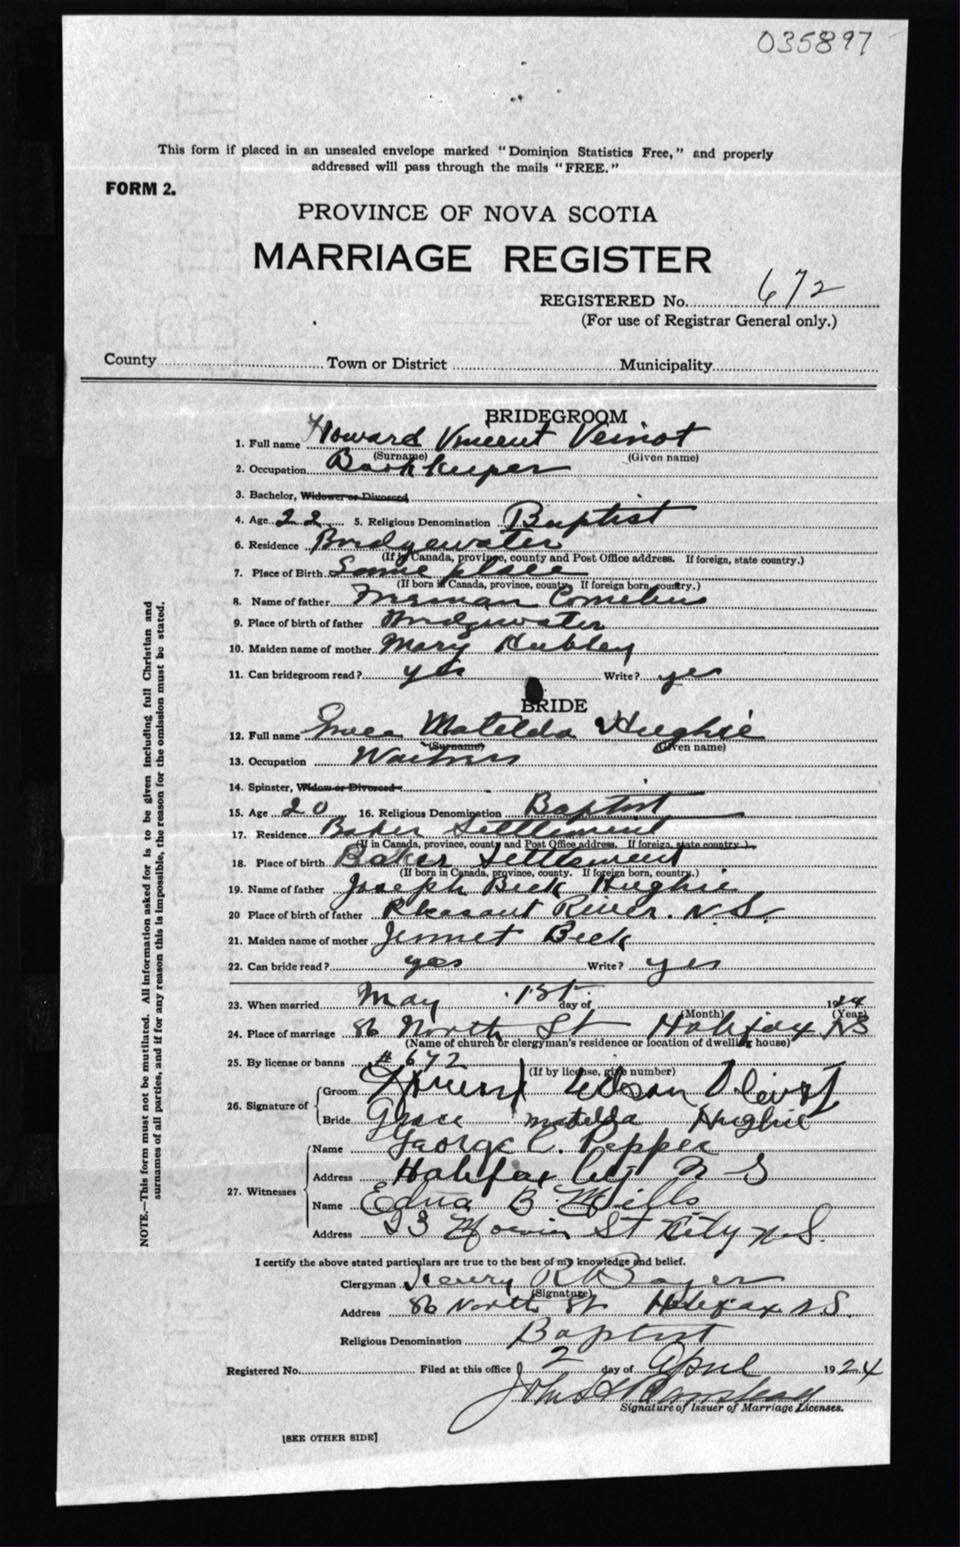 035897
This form if placed in an unsealed envelope marked "Dominion Statistics Free," and properly
addressed will pass through the mails "FREE."
FORM 2.
PROVINCE OF NOVA SCOTIA
MARRIAGE REGISTER
REGISTERED No. 672
(For use of Registrar General only.)
County Town or District Municipality
BRIDEGROOM
1. Full name Howard Vincent Veinot
(Surname) (Given name)
2. Occupation Bookkeeper
3. Bachelor, Widower or Divorced
4. Age 22 5. Religious Denomination Baptist
6. Residence Bridgewater
(If in Canada, province, county and Post Office address. If foreign, state country.)
7. Place of Birth Same place
(If born in Canada, province, county. If foreign born, country.)
8. Name of father
9. Place of birth of father Bridgewater
10. Maiden name of mother Mary Hubley
11. Can bridegroom read? yes Write? yes
BRIDE
12. Full name Matelda Hughie
(Surname) (Given name)
13. Occupation Waitress
14. Spinster, Widow or Divorced
15. Age 20 16. Religious Denomination Baptist
17. Residence Baker Settlement
(If in Canada, province, county and Post Office address. If foreign, state country.)
18. Place of birth Baker Settlement
(If born in Canada, province, county. If foreign born, country.)
19. Name of father Joseph Beck Hughie
20 Place of birth of father Pleasant River. N.S.
21. Maiden name of mother Jennet Beck
22. Can bride read? yes Write? yes
23. When married May 1st. day of 1924
(Month) (Year)
24. Place of marriage 86 North St Halifax NS
(Name of church or clergyman's residence or location of dwelling house)
25. By license or banns # 672
(If by license, give number)
26. Signature of Groom
Bride Grace Matilda Hughie
27. Witnesses Name George C. Pepper
Address Halifax City N S
Name Edna B Mills
Address 23 St City N.S.
I certify the above stated particulars are true to the best of my knowledge and belief.
Clergyman Henry R Boyer
(Signature)
Address 86 North St Halifax N.S.
Religious Denomination Baptist
Registered No. Filed at this office 2 day of April 1924
John
Signature of Issuer of Marriage Licenses.
[SEE OTHER SIDE]
NOTE.—This form must not be mutilated. All information asked for is to be given including full Christian and
surnames of all parties, and if for any reason this is impossible, the reason for the omission must be stated.